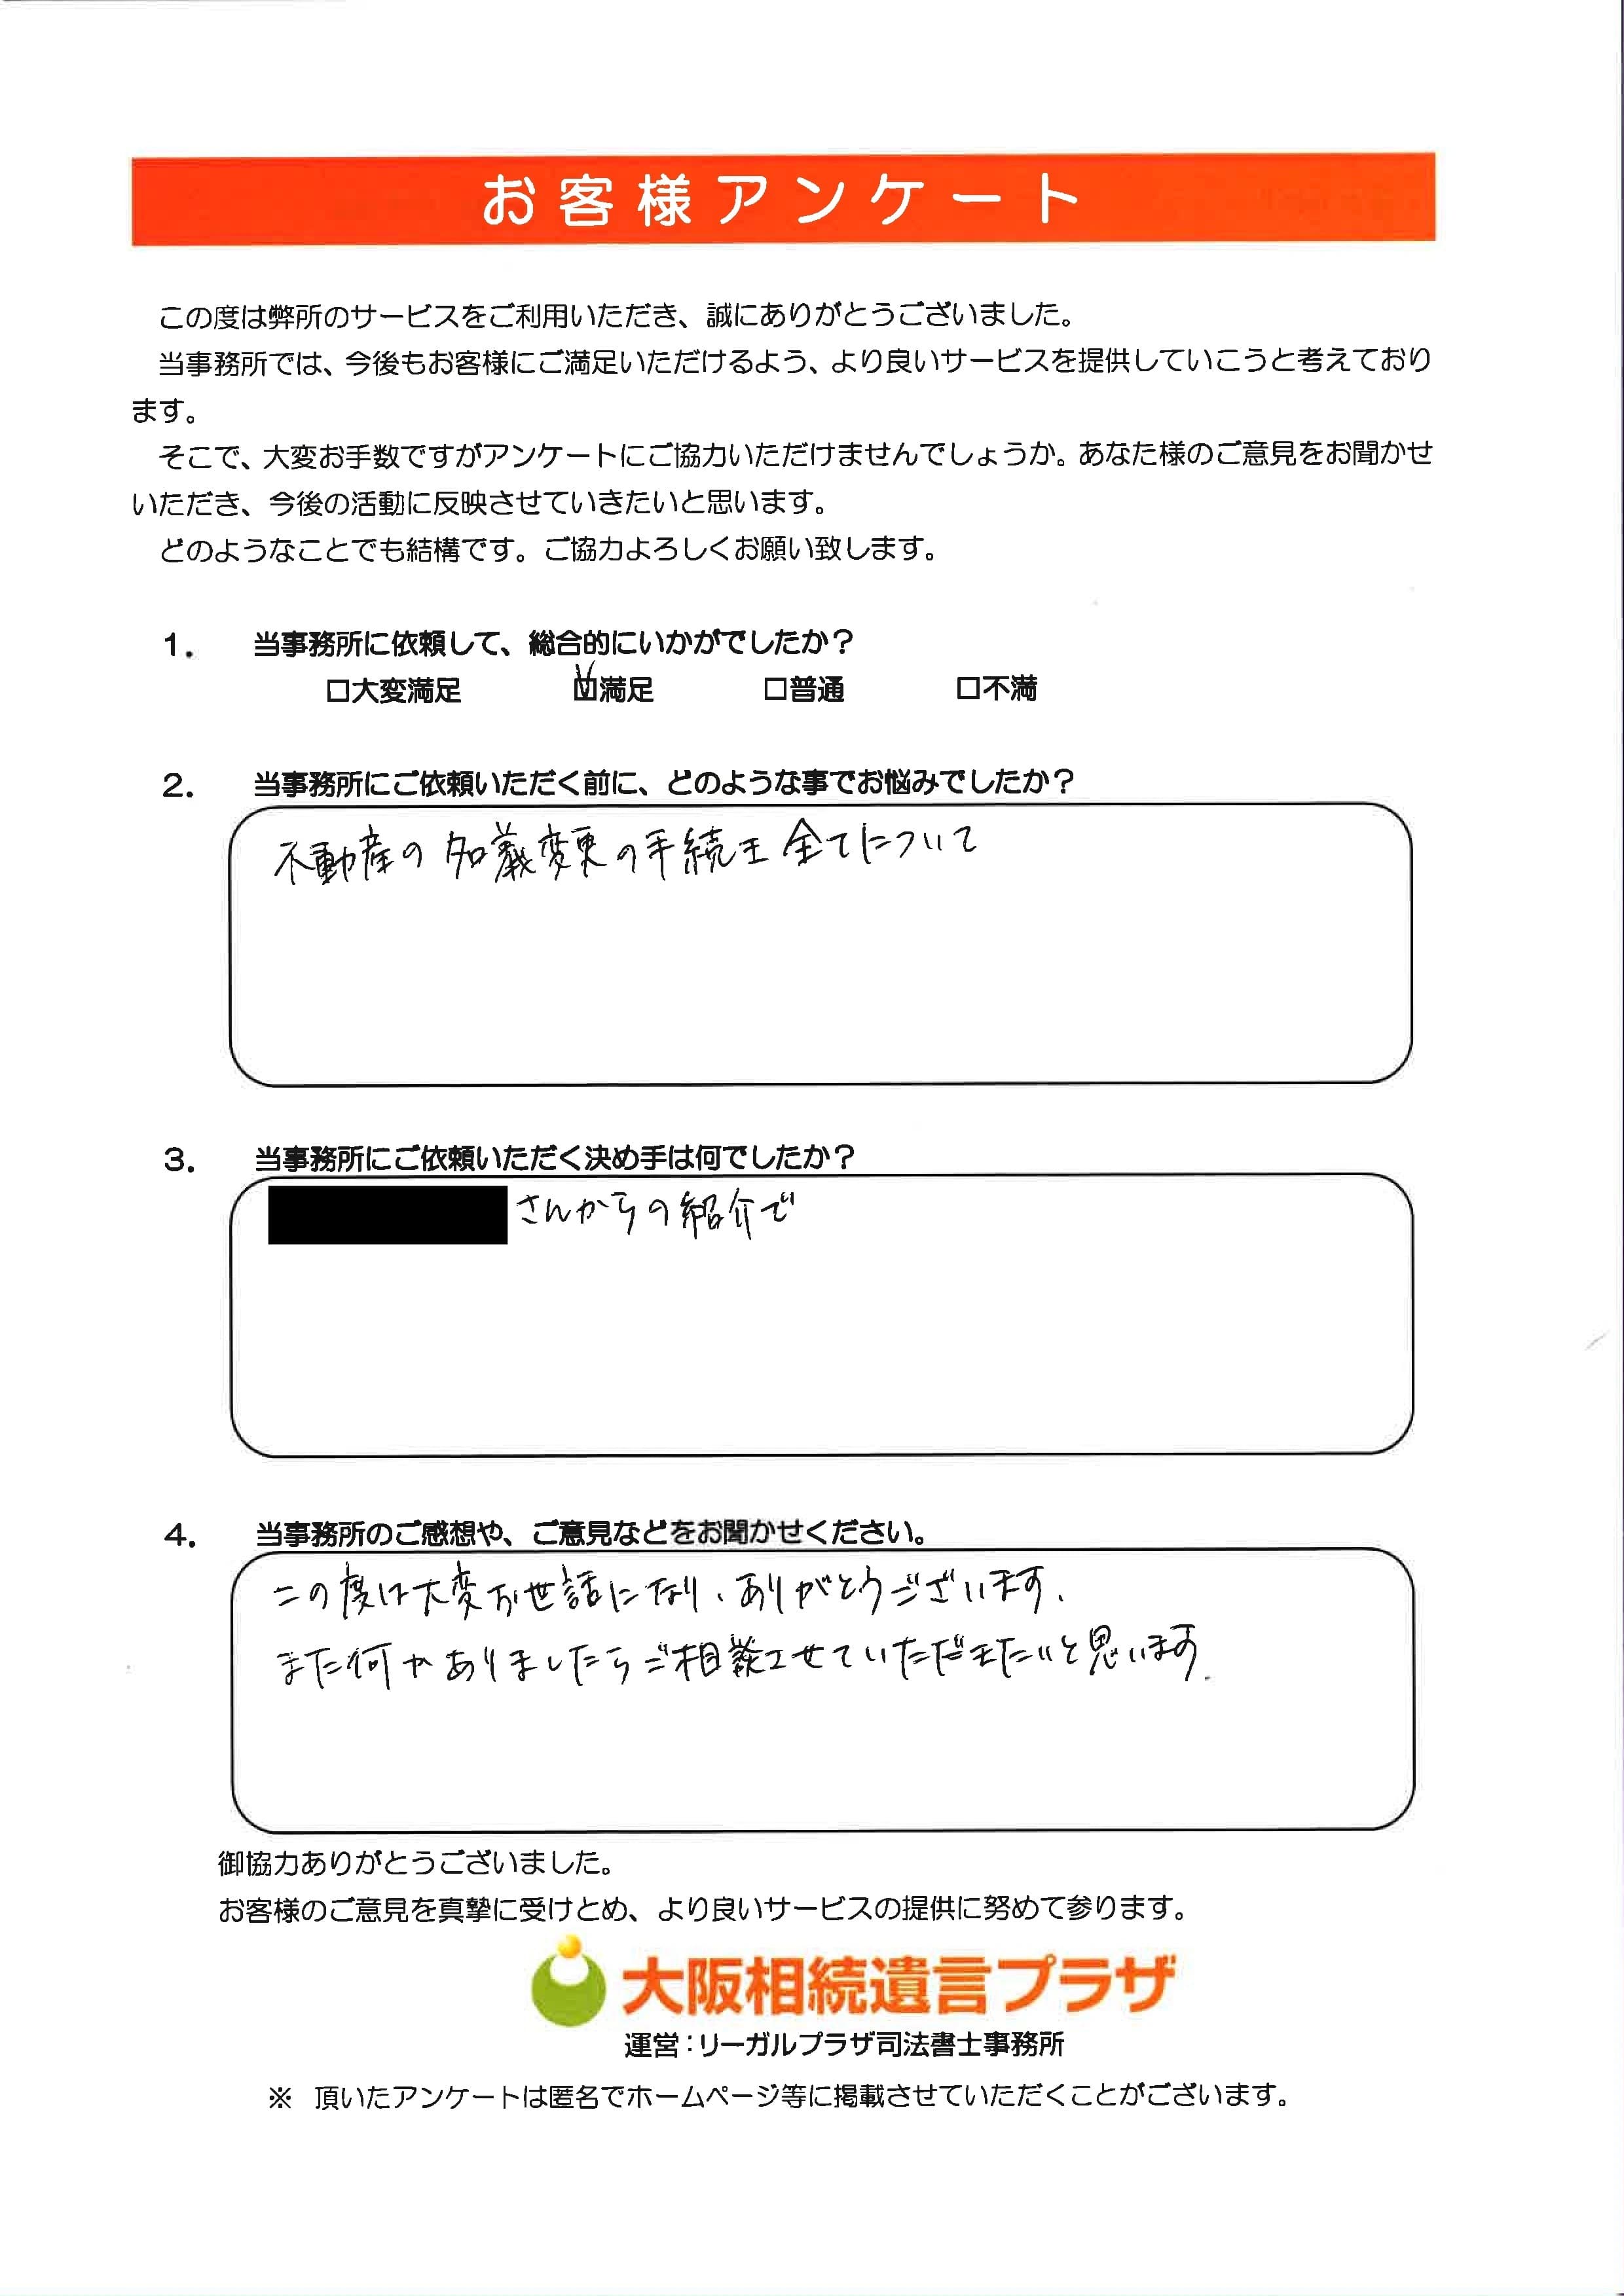 お客様アンケート
この度は弊所のサービスをご利用いただき、誠にありがとうございました。
当事務所では、今後もお客様にご満足いただけるよう、より良いサービスを提供していこうと考えており
ます。
そこで、大変お手数ですがアンケートにご協力いただけませんでしょうか。あなた様のご意見をお聞かせ
いただき、今後の活動に反映させていきたいと思います。
どのようなことでも結構です。ご協力よろしくお願い致します。
1. 当事務所に依頼して、総合的にいかがでしたか？
□大変満足 ☑満足 □普通 □不満
2. 当事務所にご依頼いただく前に、どのような事でお悩みでしたか？
不動産の名義変更の手続き全てについて
3. 当事務所にご依頼いただく決め手は何でしたか？
さんからの紹介で
4. 当事務所のご感想や、ご意見などをお聞かせください。
この度は大変お世話になり、ありがとうございます。
また何かありましたらご相談させていただきたいと思います。
御協力ありがとうございました。
お客様のご意見を真摯に受けとめ、より良いサービスの提供に努めて参ります。
大阪相続遺言プラザ
運営：リーガルプラザ司法書士事務所
※ 頂いたアンケートは匿名でホームページ等に掲載させていただくことがございます。